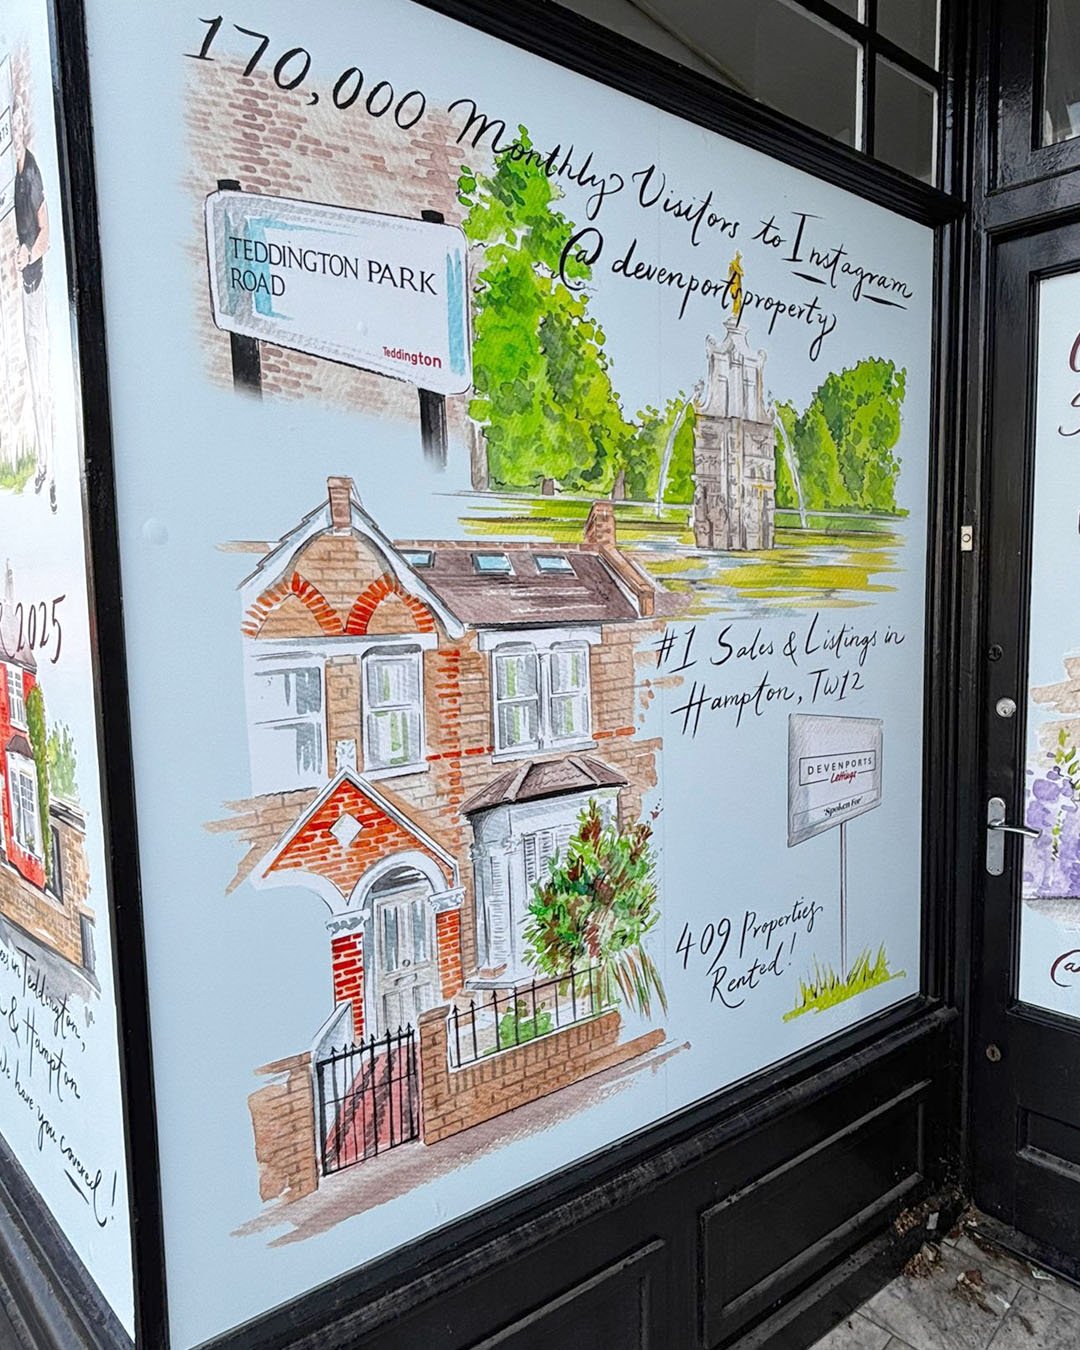 170,000 Monthly Visitors to Instagram
@devenportsproperty
TEDDINGTON PARK
ROAD
Teddington
#1 Sales & Listings in
Hampton, TW12
DEVENPORTS
Lettings
'Spoken For'
409 Properties
Rented!
2025
in Teddington,
& Hampton
We have you covered!